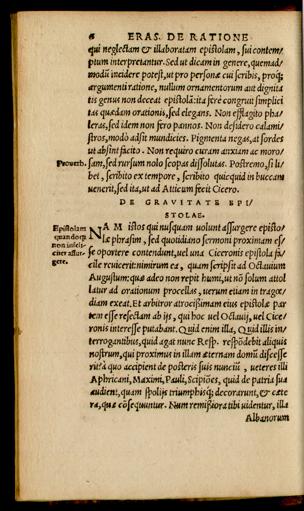 6 ERAS. DE RATIONE
qui neglectam & illaboratam epistolam, sui contem‐
ptum interpretantur. Sed ut dicam in genere, quemad‐
modũ incidere potest, ut pro personæ cui scribis, proq;
argumenti ratione, nullum ornamentorum aut dignita
tis genus non deceat epistolã: ita ferè congruit simplici
tas quædam orationis, sed elegans. Non efflagito pha‐
leras, sed idem non fero pannos. Non desidero calami‐
stros, modò adsit mundicies. Pigmenta negas, at sordes
ut absint facito. Non requiro curam anxiam ac moro‐
Proverb.
sam, sed rursum nolo scopas dissolutas. Postremo, si li‐
bet, scribito ex tempore, scribito quicquid in buccam
uenerit, sed ita, ut ad Atticum fecit Cicero.
DE GRAVITATE EPI‐
STOLAE.
Epistolam
quandoq;
non infeli‐
citer assur‐
gere.
NAM istos qui nusquam uolunt assurgere episto‐
læ phrasim, sed quotidiano sermoni proximam es‐
se oportere contendunt, uel una Ciceronis epistola fa‐
cile reuicerit: nimirum ea, quam scripsit ad Octauium
Augustum: quæ adeo non repit humi, ut nõ solum attol
latur ad orationum procellas, uerum etiam in tragœ‐
diam exeat. Et arbitror atrocißimam eius epistolæ par
tem esse resectam ab ijs, qui hoc uel Octauij, uel Cice‐
ronis interesse putabant. Quid enim illa, Quid illis in‐
terrogantibus, quid agat nunc Resp. respõdebit aliquis
nostrum, qui proximus in illam æternam domũ discesse
rit? à quo accipient de posteris suis nunciũ, ueteres illi
Aphricani, Maximi, Pauli, Scipiões, quid de patria sua
audient, quam spolijs triumphisq; decorarunt, & cæte
ra, quæ cõsequuntur. Num remißiora tibi uidentur, illa
Albanorum